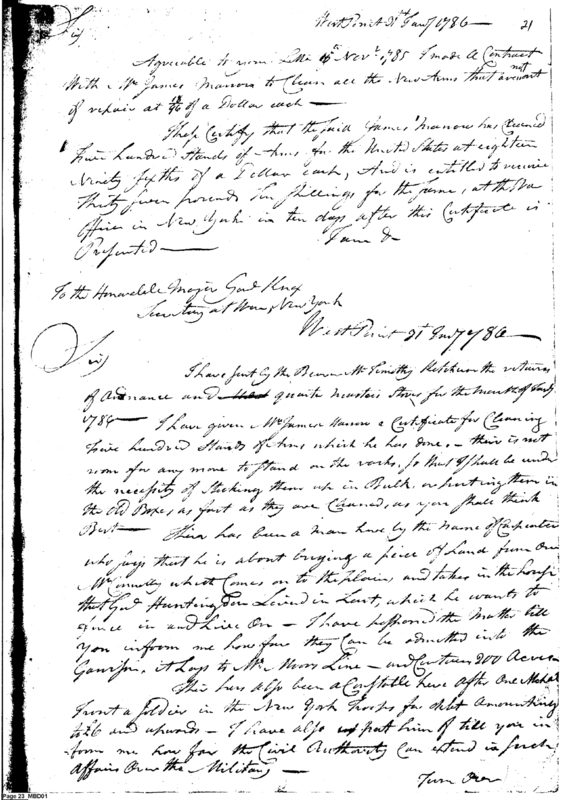 West Point 31st Jany 1786 — 21
Sir
Agreeable to your Letter 15th Novr 1785 I made A Contract
With Mr James Marrow to Clean all the New Arms that are not
of repair at 18/96 of a Dollar each —
These Certify that the said James Marrow has Cleaned
five hundred Stands of Arms for the United States at eighteen
Ninety sixths of a Dollar each, And is entitled to receive
thirty seven pounds ten shillings for the same, at the War
Office in New York in ten days after this Certificate is
Presented — I am &
To the Honorable Major Genl Knox
Secretary at War, New York
West Point 31st Jany 1786 —
Sir
I have sent by the Bearer Mr Timothy the returns
of Ordnance and quarter masters Stores for the month of Jany
1786 — I have given Mr James Marrow a Certificate for Cleaning
five hundred Stands of Arms which he has done. — their is not
room for any more to Stand on the racks, so that I shall be under
the necessity of Sticking them up in Bulk, or puting them in
the old Boxes, as fast as they are Cleaned, as you shall think
Best — Their has been a man here by the name of Carpenter
who says that he is about buying a peice of Land from One
Mr which Comes on to the plains and takes in the house
that Genl Huntington Lived in Last, which he wants to
fence in and Live On — I have the Matter till
you inform me how far they Can be admitted into the
Garrison, it Lays to Mr Moors Line — and Contains 200 Acres
This has also been a Constable here After One
a Soldier in the New York troops for debt Amounting
to £6 and upwards — I have also put him of till you in
form me how far the Civil Authority Can extend in such
Affairs Over the Military —
Turn Over
Page 23 MBD01